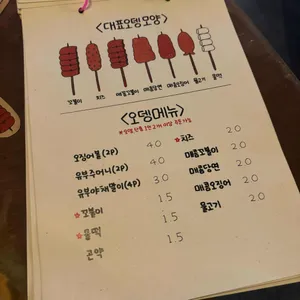 <대표오뎅모양>
꼬불이 치즈 매콤꼬불이 매콤당면 매콤오징어 물고기 물떡
<오뎅메뉴>
오징어볼(2P) 4.0
유부주머니(2P) 4.0
유부야채말이(4P) 3.0
☆ 꼬불이 1.5
☆ 물떡 1.5
곤약 1.5
☆ 치즈 2.0
매콤꼬불이 2.0
매콤당면 2.0
매콤오징어 2.0
물고기 2.0